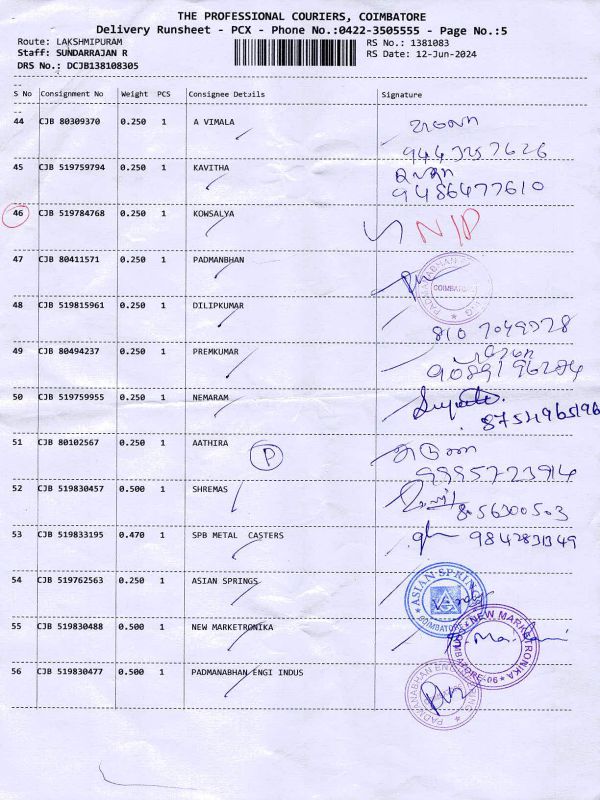 THE PROFESSIONAL COURIERS, COIMBATORE
Delivery Runsheet - PCX - Phone No.:0422-3505555 - Page No.:5
Route: LAKSHMIPURAM
Staff: SUNDARRAJAN R
DRS No.: DCJB138108305
RS No.: 1381083
RS Date: 12-Jun-2024
S No Consignment No Weight PCS Consignee Details Signature
44 CJB 80309370 0.250 1 A VIMALA
45 CJB 519759794 0.250 1 KAVITHA
9486477610
46 CJB 519784768 0.250 1 KOWSALYA N/D
47 CJB 80411571 0.250 1 PADMANBHAN
COIMBATORE
48 CJB 519815961 0.250 1 DILIPKUMAR
49 CJB 80494237 0.250 1 PREMKUMAR
50 CJB 519759955 0.250 1 NEMARAM
8754965196
51 CJB 80102567 0.250 1 AATHIRA P
9995723914
52 CJB 519830457 0.500 1 SHREMAS
8056300503
53 CJB 519833195 0.470 1 SPB METAL CASTERS
9842831349
54 CJB 519762563 0.250 1 ASIAN SPRINGS
ASIAN SPRINGS
COIMBATORE
55 CJB 519830488 0.500 1 NEW MARKETRONIKA
56 CJB 519830477 0.500 1 PADMANABHAN ENGI INDUS